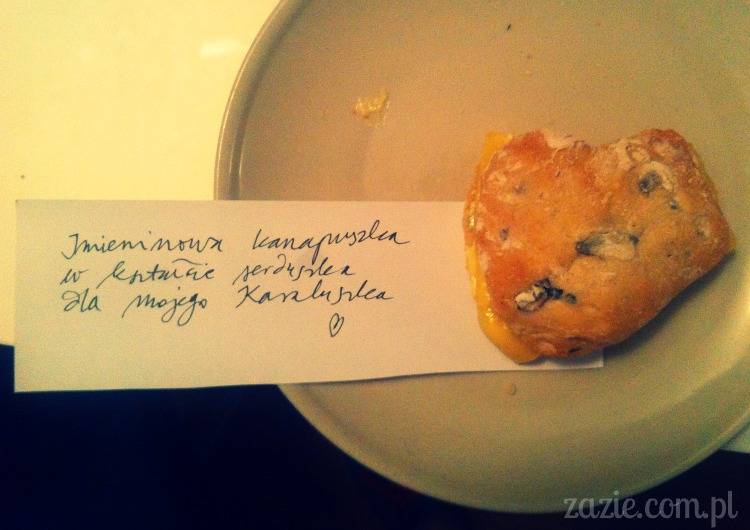 Imieninowa kanapuszka
w kształcie serduszka
dla mojego Karaluszka
♡
zazie.com.pl